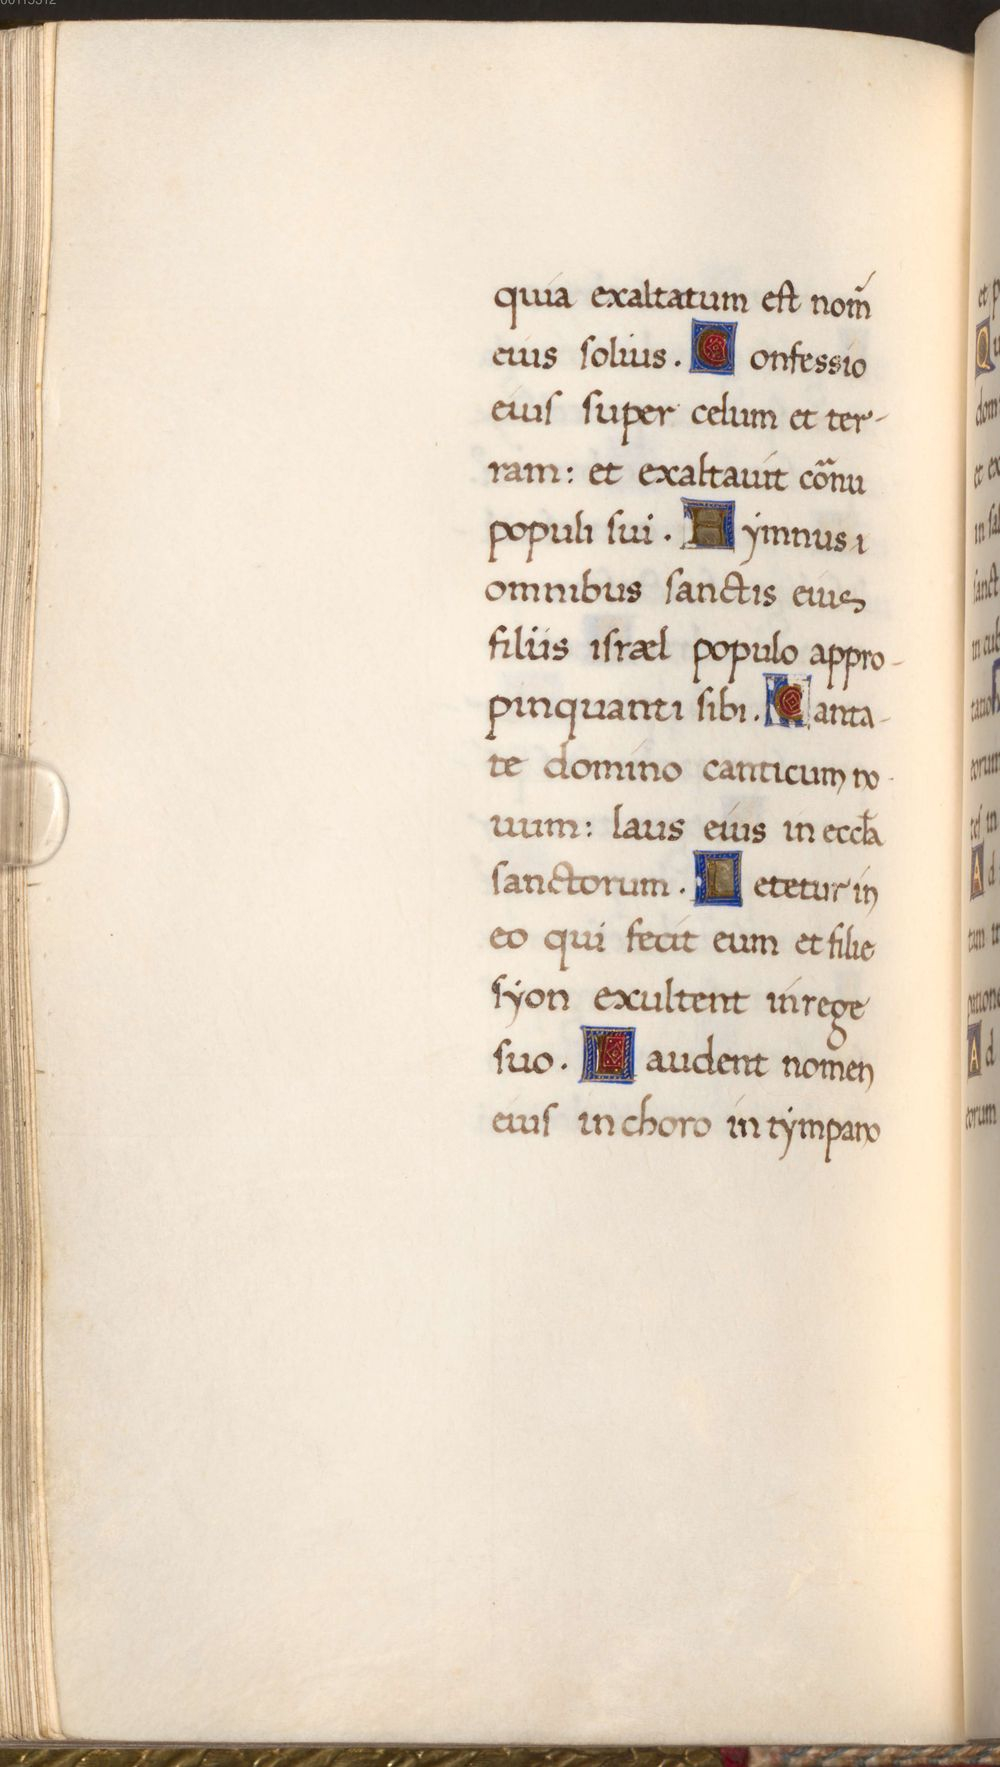 quia exaltatum est nom̃
eius solius. Confessio
eius super celum et ter-
ram: et exaltauit cõrnu
populi sui. Hymnus i
omnibus sanctis eius
filiis israel populo appro-
pinquanti sibi. Canta-
te domino canticum no-
uum: laus eius in eccl̃a
sanctorum. Letetur in
eo qui fecit eum et filie
syon exultent in rege
suo. Laudent nomen
eius in choro in tympano